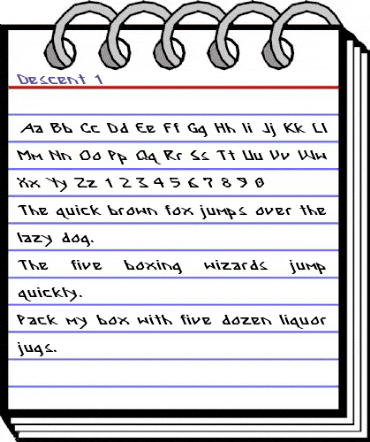 Descent 1
Aa Bb Cc Dd Ee Ff Gg Hh Ii Jj Kk Ll
Mm Nn Oo Pp Qq Rr Ss Tt Uu Vv Ww
Xx Yy Zz 1 2 3 4 5 6 7 8 9 0
The quick brown fox jumps over the
lazy dog.
The five boxing wizards jump
quickly.
Pack my box with five dozen liquor
jugs.